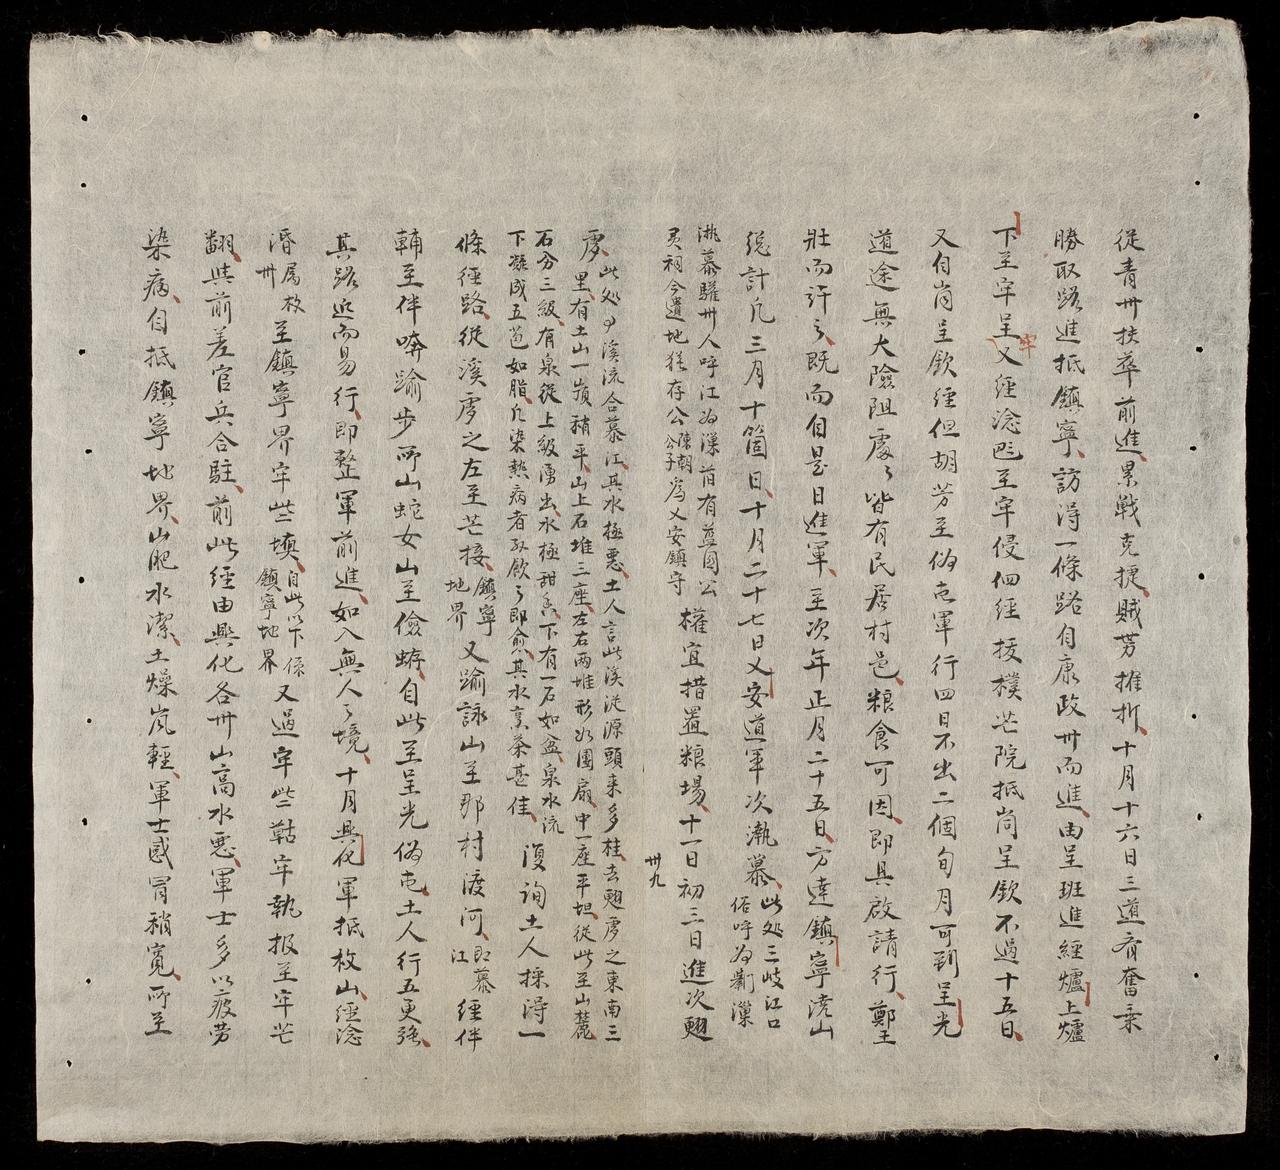 從青卅扶萃前進累戰克捷賊势摧折十月十六日三道齐奮乗
勝取路進抵鎮寧訪淂一條路自康政卅而進由呈班進經爐上爐
下至牢呈乂經淰㐌至牢侵佪經拔樸芒院抵尚呈欽不過十五日
牢
又自尚呈欽經但胡芳至偽屯軍行四日不出二個旬月可到呈光
道途無大險阻處〻皆有民居村邑粮食可因即具啟請行鄭王
壯而許之既而自是日進軍至次年正月二十五日方達鎮寧澆山
總計凡三月十箇日十月二十七日乂安道軍次㵢慕此处三岐江口
俗呼为
洮慕驩卅人呼江为
灵祠今遺地犹存公陳朝
公子為乂安鎮守
權宜措置粮場十一日初三日進次翹
卅九
处
溪流合慕江其水極悪土人言此溪従源頭来多桂去翹
之東南三
里有土山一嵿稍平山上石堆三座左右两堆形如團扇中一座平坦従此至山麓
石分三級有泉從上級湧出水極甜
下有一石如盆泉水流
下凝成五色如脂凡染熱病者
飲之即愈其水烹茶甚佳
復詢土人採淂一
條徑路從溪
之左至芒接鎮寧
地界又踰詠山至那村渡河即慕
江經伴
輔至伴嗙踰步所山蛇女山至儉蝣自此至呈光偽屯土人行五更強
其路近而易行即整軍前進如入無人之境十月興化軍抵枚山經淰
㵋属枚
卅至鎮寧界牢些塡自此以下係
鎮寧地界又過牢些㔟牢執报至牢芒
翻與前差官兵合駐前此經由興化各卅山高水悪軍士多以疲劳
染病自抵鎮寧地界山肥水潔土燥岚輕軍士感冒稍寛所至